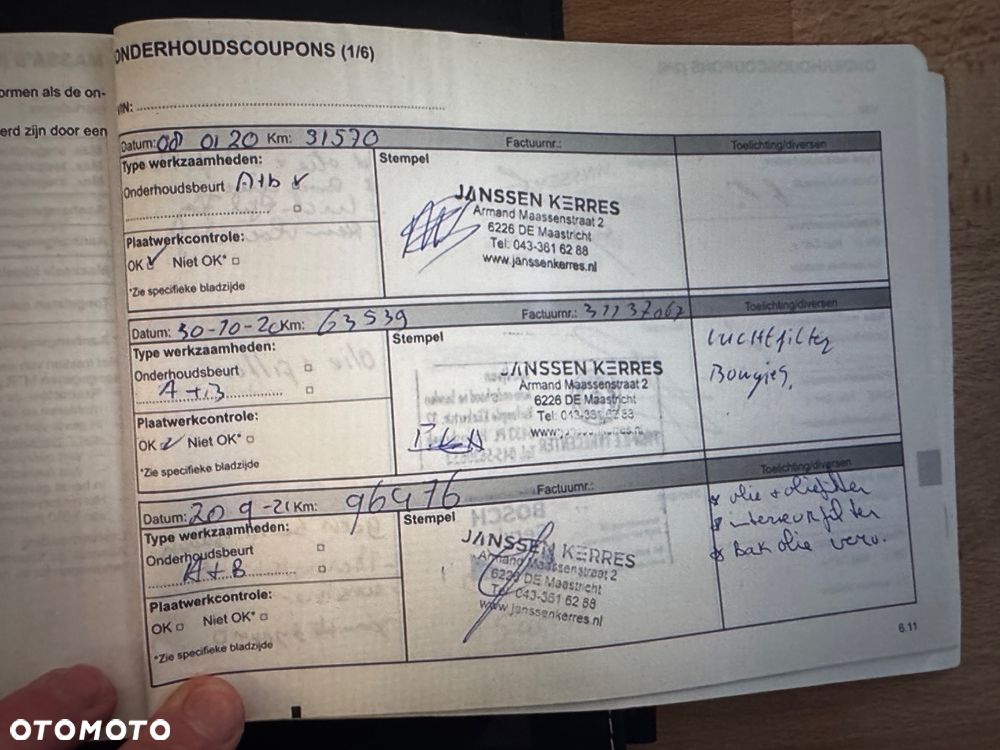 ONDERHOUDSCOUPONS (1/6)
ormen als de on-
erd zijn door een
VIN:
Datum: 08 01 20 Km: 31570 Factuurnr.: Toelichting/diversen
Type werkzaamheden:
Stempel
Onderhoudsbeurt A+b
Plaatwerkcontrole:
OK Niet OK*
*Zie specifieke bladzijde
JANSSEN KERRES
Armand Maassenstraat 2
6226 DE Maastricht
Tel: 043-361 62 88
www.janssenkerres.nl
Datum: 30-10-20 Km: 63539 Factuurnr.: Toelichting/diversen
Type werkzaamheden:
Stempel
Onderhoudsbeurt
A+B
Plaatwerkcontrole:
OK Niet OK*
*Zie specifieke bladzijde
JANSSEN KERRES
Armand Maassenstraat 2
6226 DE Maastricht
Tel:
luchtfilter
Bougies,
Datum: 20 9 -21 Km: 96476 Factuurnr.: Toelichting/diversen
Type werkzaamheden:
Stempel
Onderhoudsbeurt
A+B
Plaatwerkcontrole:
OK Niet OK*
*Zie specifieke bladzijde
JANSSEN KERRES
Armand Maassenstraat 2
6226 DE Maastricht
Tel: 043-361 62 88
www.janssenkerres.nl
olie + oliefilter
interieurfilter
Bak olie verv.
6.11
OTOMOTO